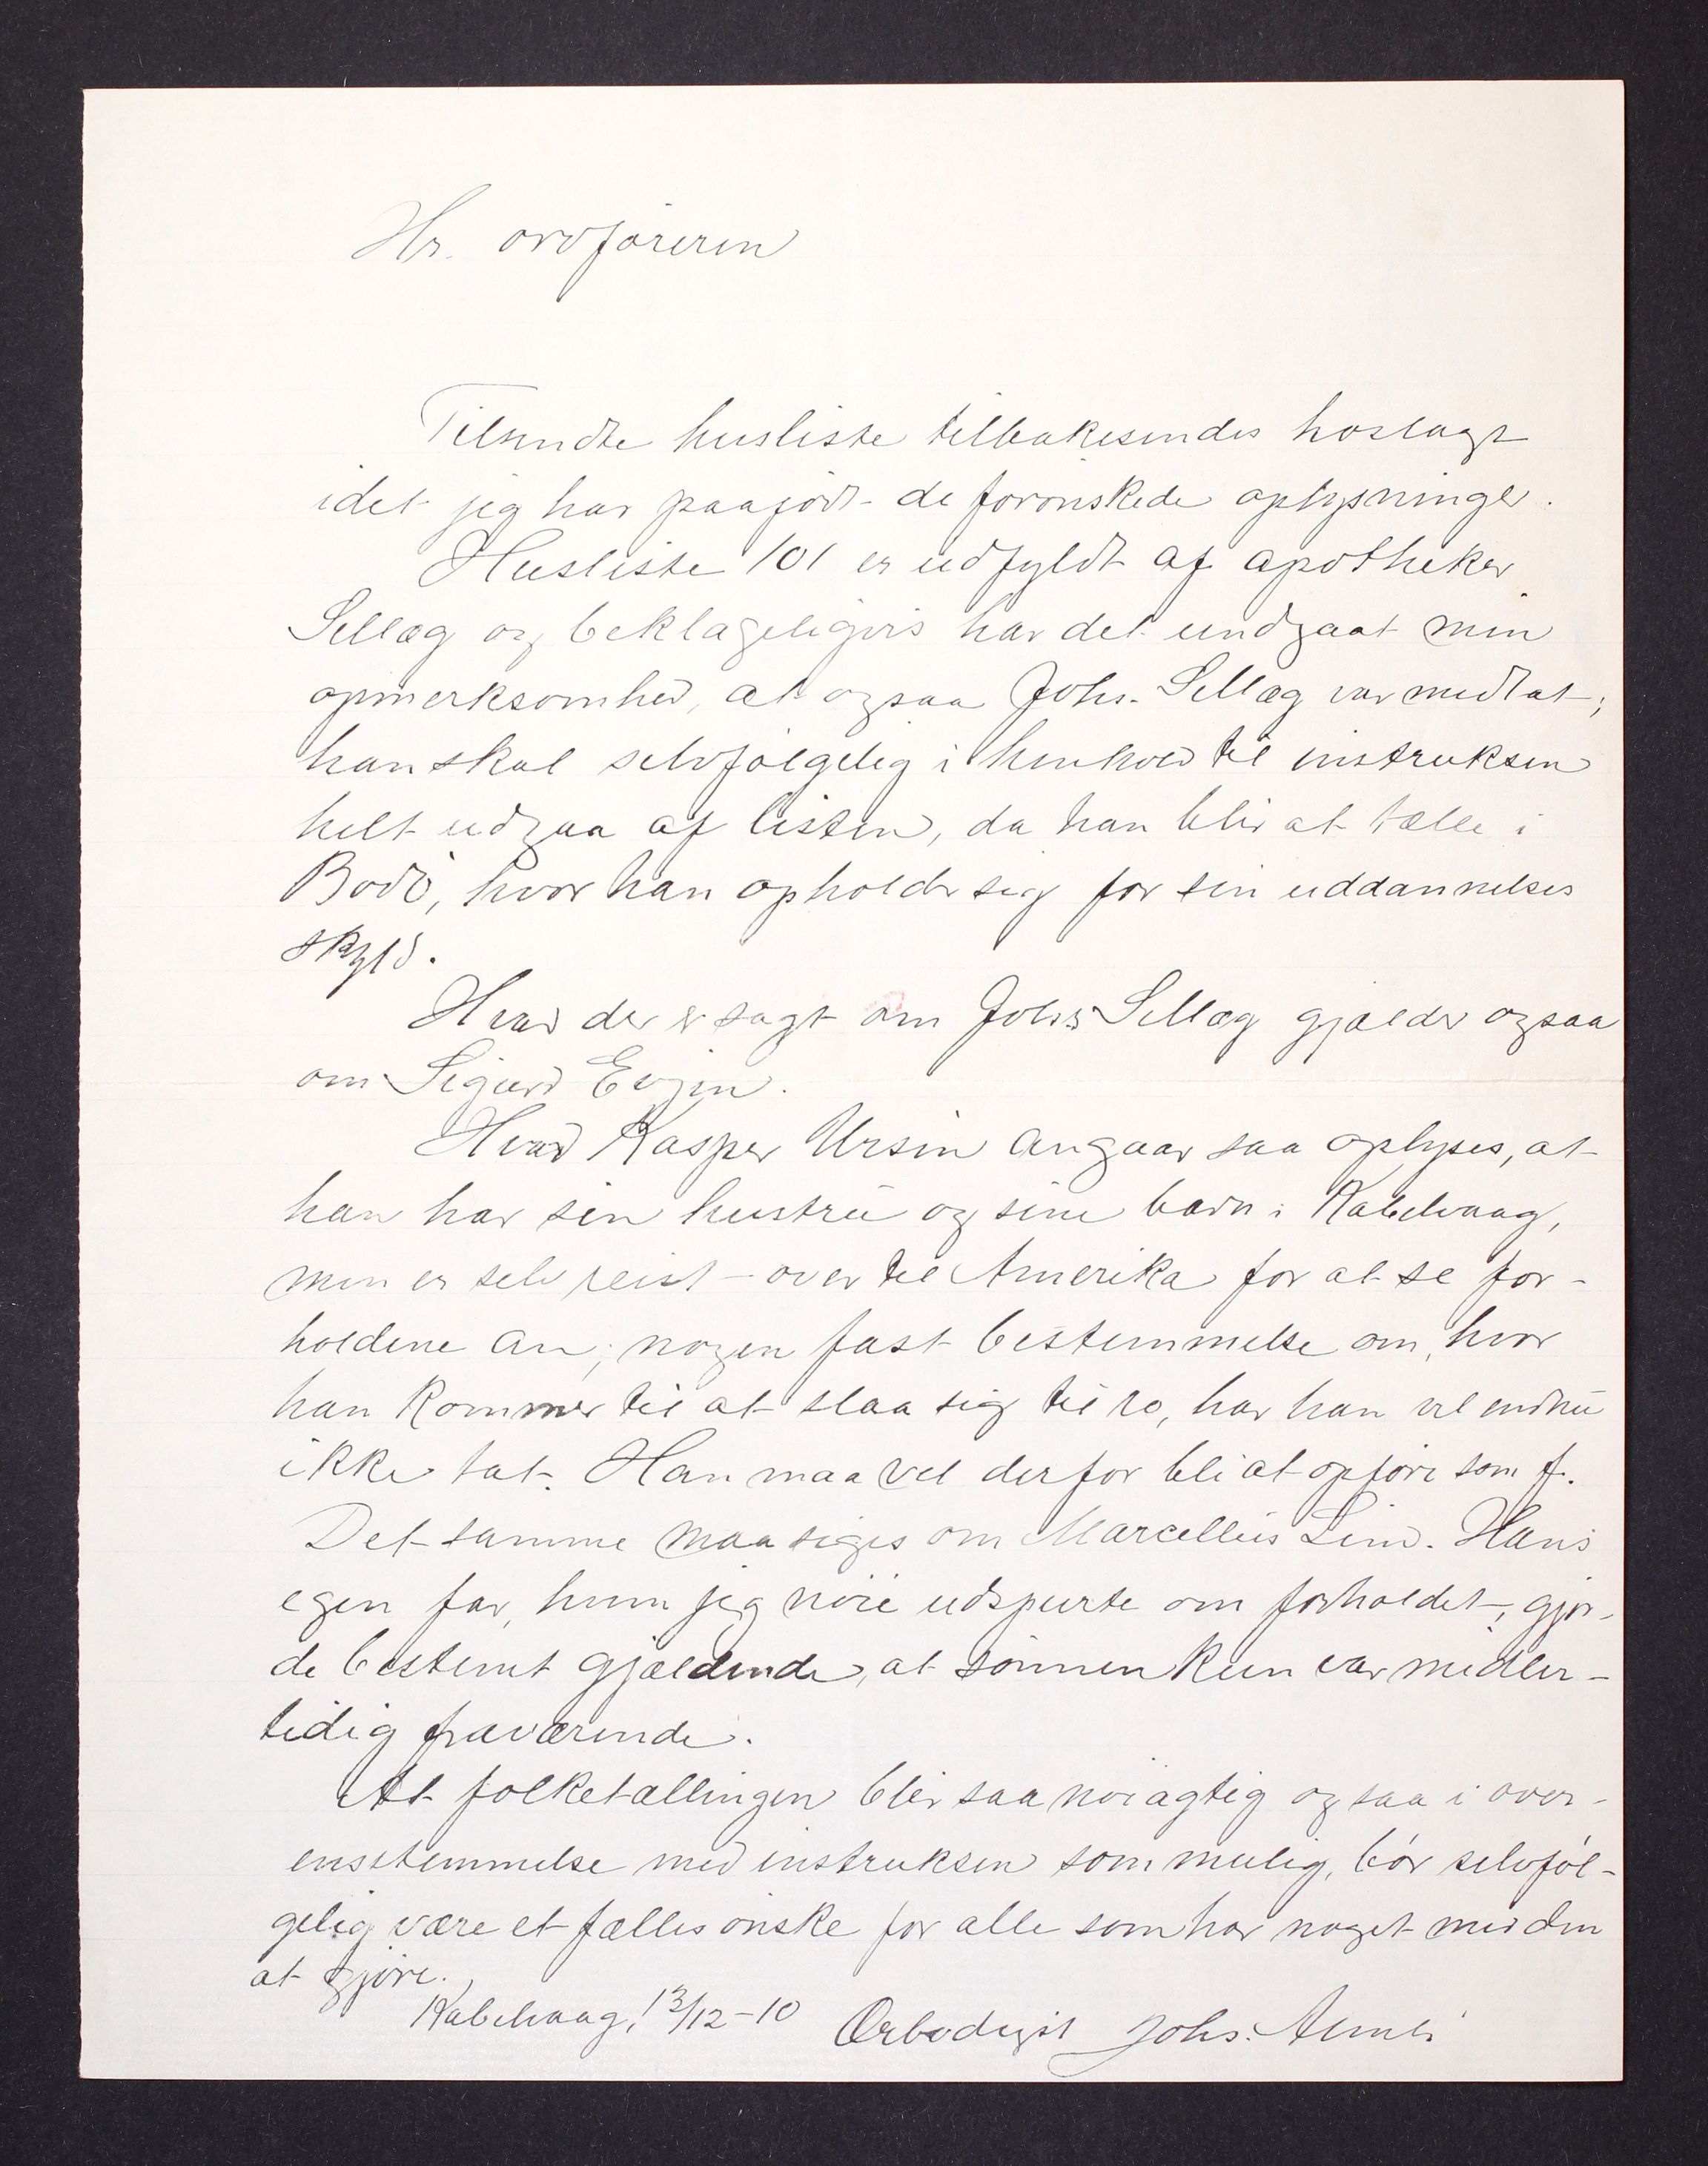 Hr. ordføreren
Tilsendte husliste tilbakesendes hoslagt
idet jeg har paaført de forønskede oplysninger.
Husliste 101 er udfyldt af apotheker
Sellæg og beklageligvis har det undgaat min
opmerksomhed, at ogsaa Johs. Sellæg var medtat;
han skal selvfølgelig i henhold til instruksen
helt udgaa af listen, da han blir at tælle i
Bodö, hvor han opholder sig for sin uddannelses
skyld.
Hvad der er sagt om Johs. Sellæg gjælder ogsaa
om Sigurd Evjen.
Hvad Kasper Ursin angaar saa oplyses, at
han har sin hustru og sine barn i Kabelvaag,
men er selv reist over til Amerika for at se for-
holdene an; nogen fast bestemmelse om, hvor
han kommer til at slaa sig til ro, har han vel endnu
ikke tat. Han maa vel derfor bli at opføre som f.
Det samme maa siges om Marcellus Lind. Hans
egen far, hvem jeg nöie udspurte om forholdet, gjor-
de bestemt gjældende, at sønnen kun var midler-
tidig fraværende.
At folketællingen blir saa nöiagtig og saa i over-
ensstemmelse med instruksen som mulig, bör selvføl-
gelig være et fælles ønske for alle som har noget med den
at gjøre.
Kabelvaag, 13/12-10 Ærbødigst Johs.